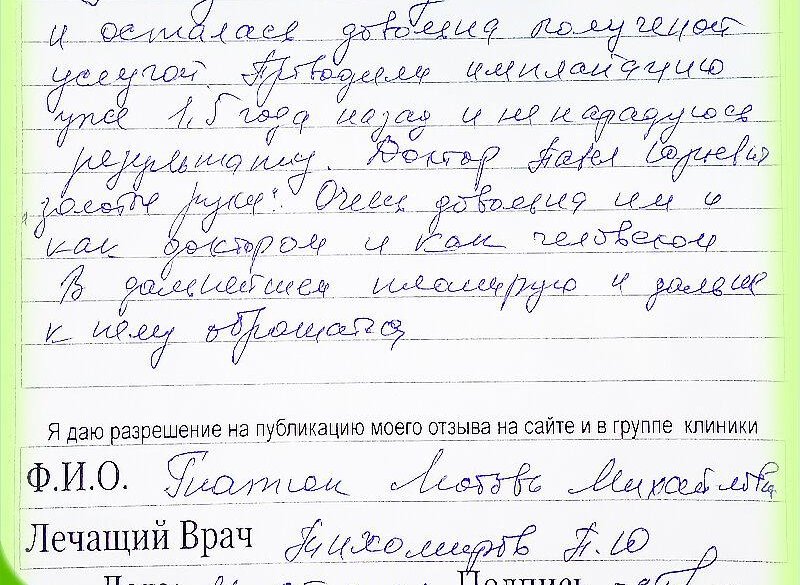 и осталась довольна полученой
услугой. Проводили имплантацию
уже 1,5 года назад и не нарадуюсь
результату. Доктор Павел Юрьевич
"золотые руки". Очень довольна им и
как доктором и как человеком
В дальнейшем планирую и дальше
к нему обращатся
Я даю разрешение на публикацию моего отзыва на сайте и в группе клиники
Ф.И.О. Любовь Михайловна
Лечащий Врач Тихомиров П.Ю
Подпись